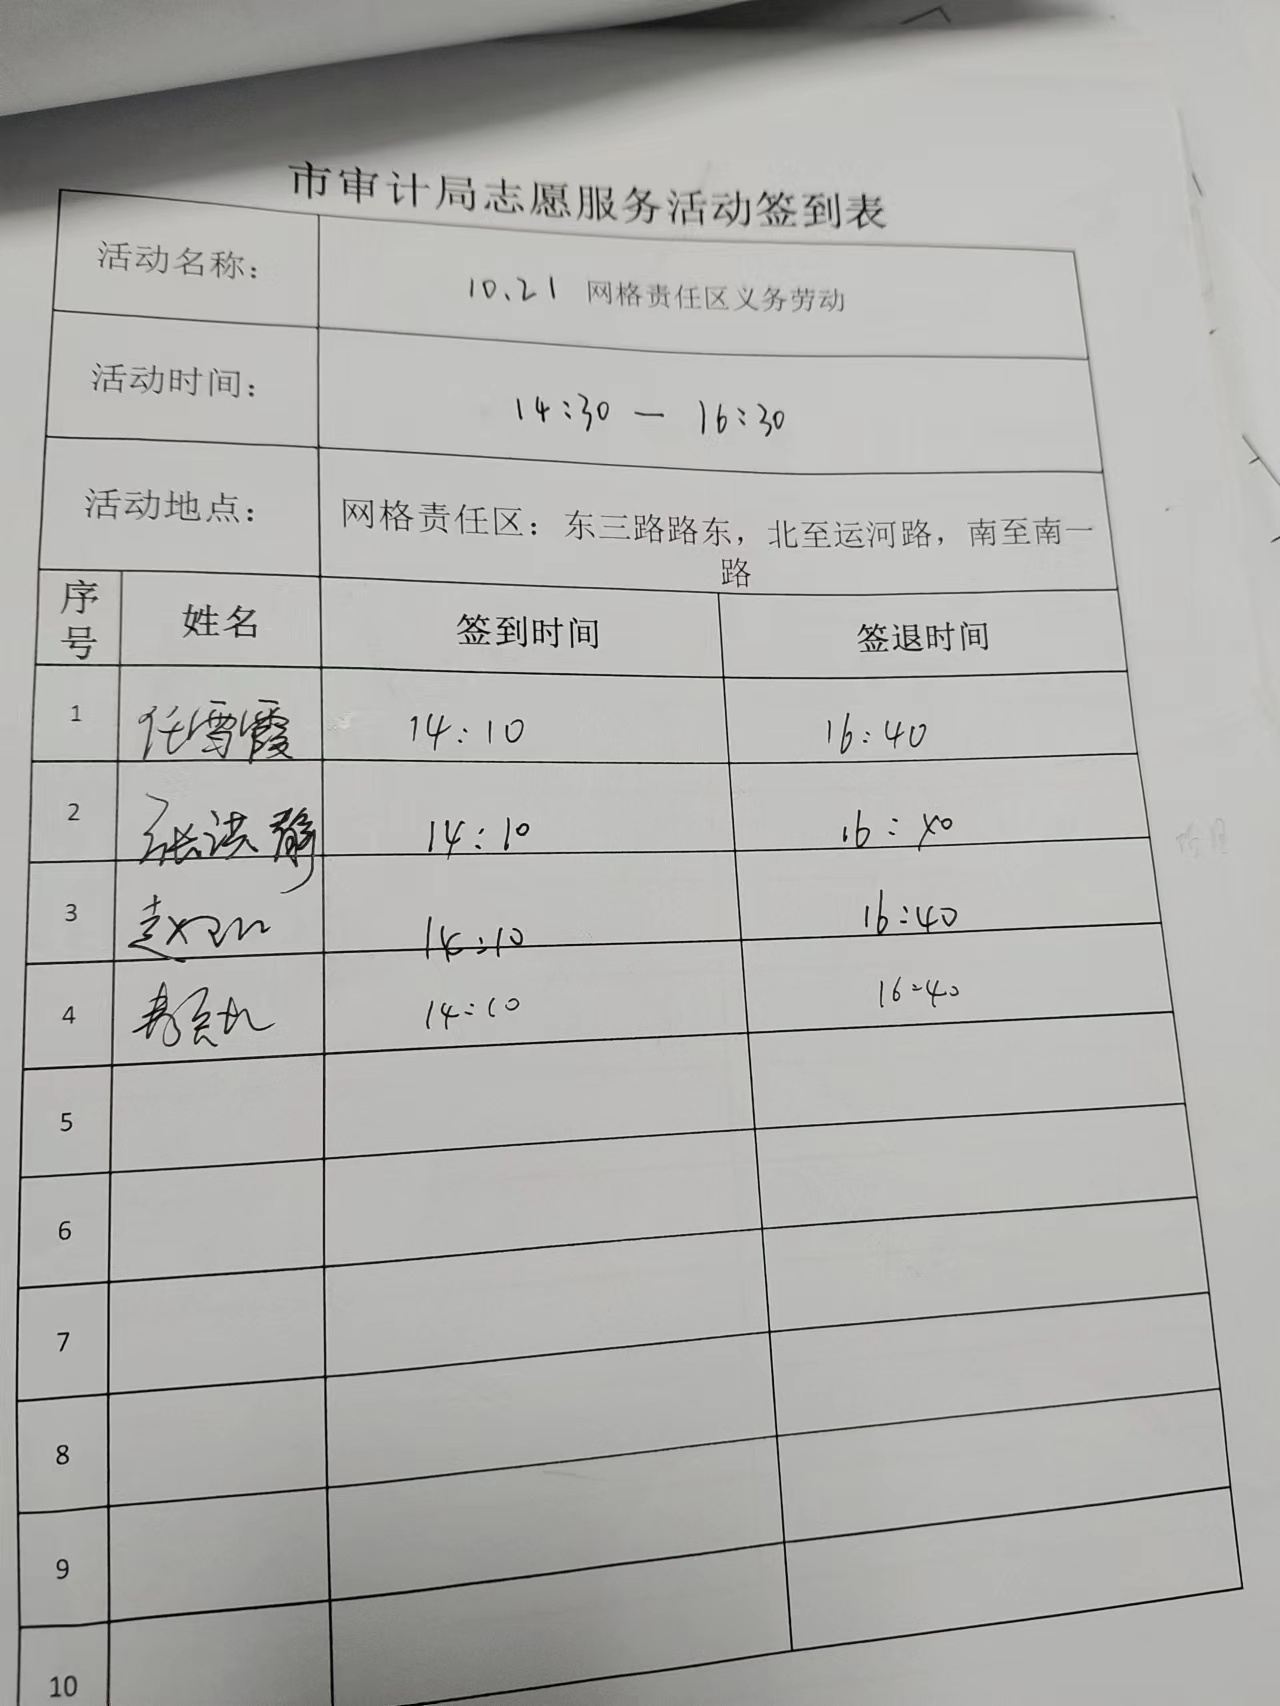 市审计局志愿服务活动签到表
活动名称： 10.21 网格责任区义务劳动
活动时间： 14:30 — 16:30
活动地点： 网格责任区：东三路路东，北至运河路，南至南一
路
序号 姓名 签到时间 签退时间
1 任雪霞 14:10 16:40
2 张洪静 14:10 16:40
3 赵 14:10 16:40
4 14:10 16:40
5
6
7
8
9
10